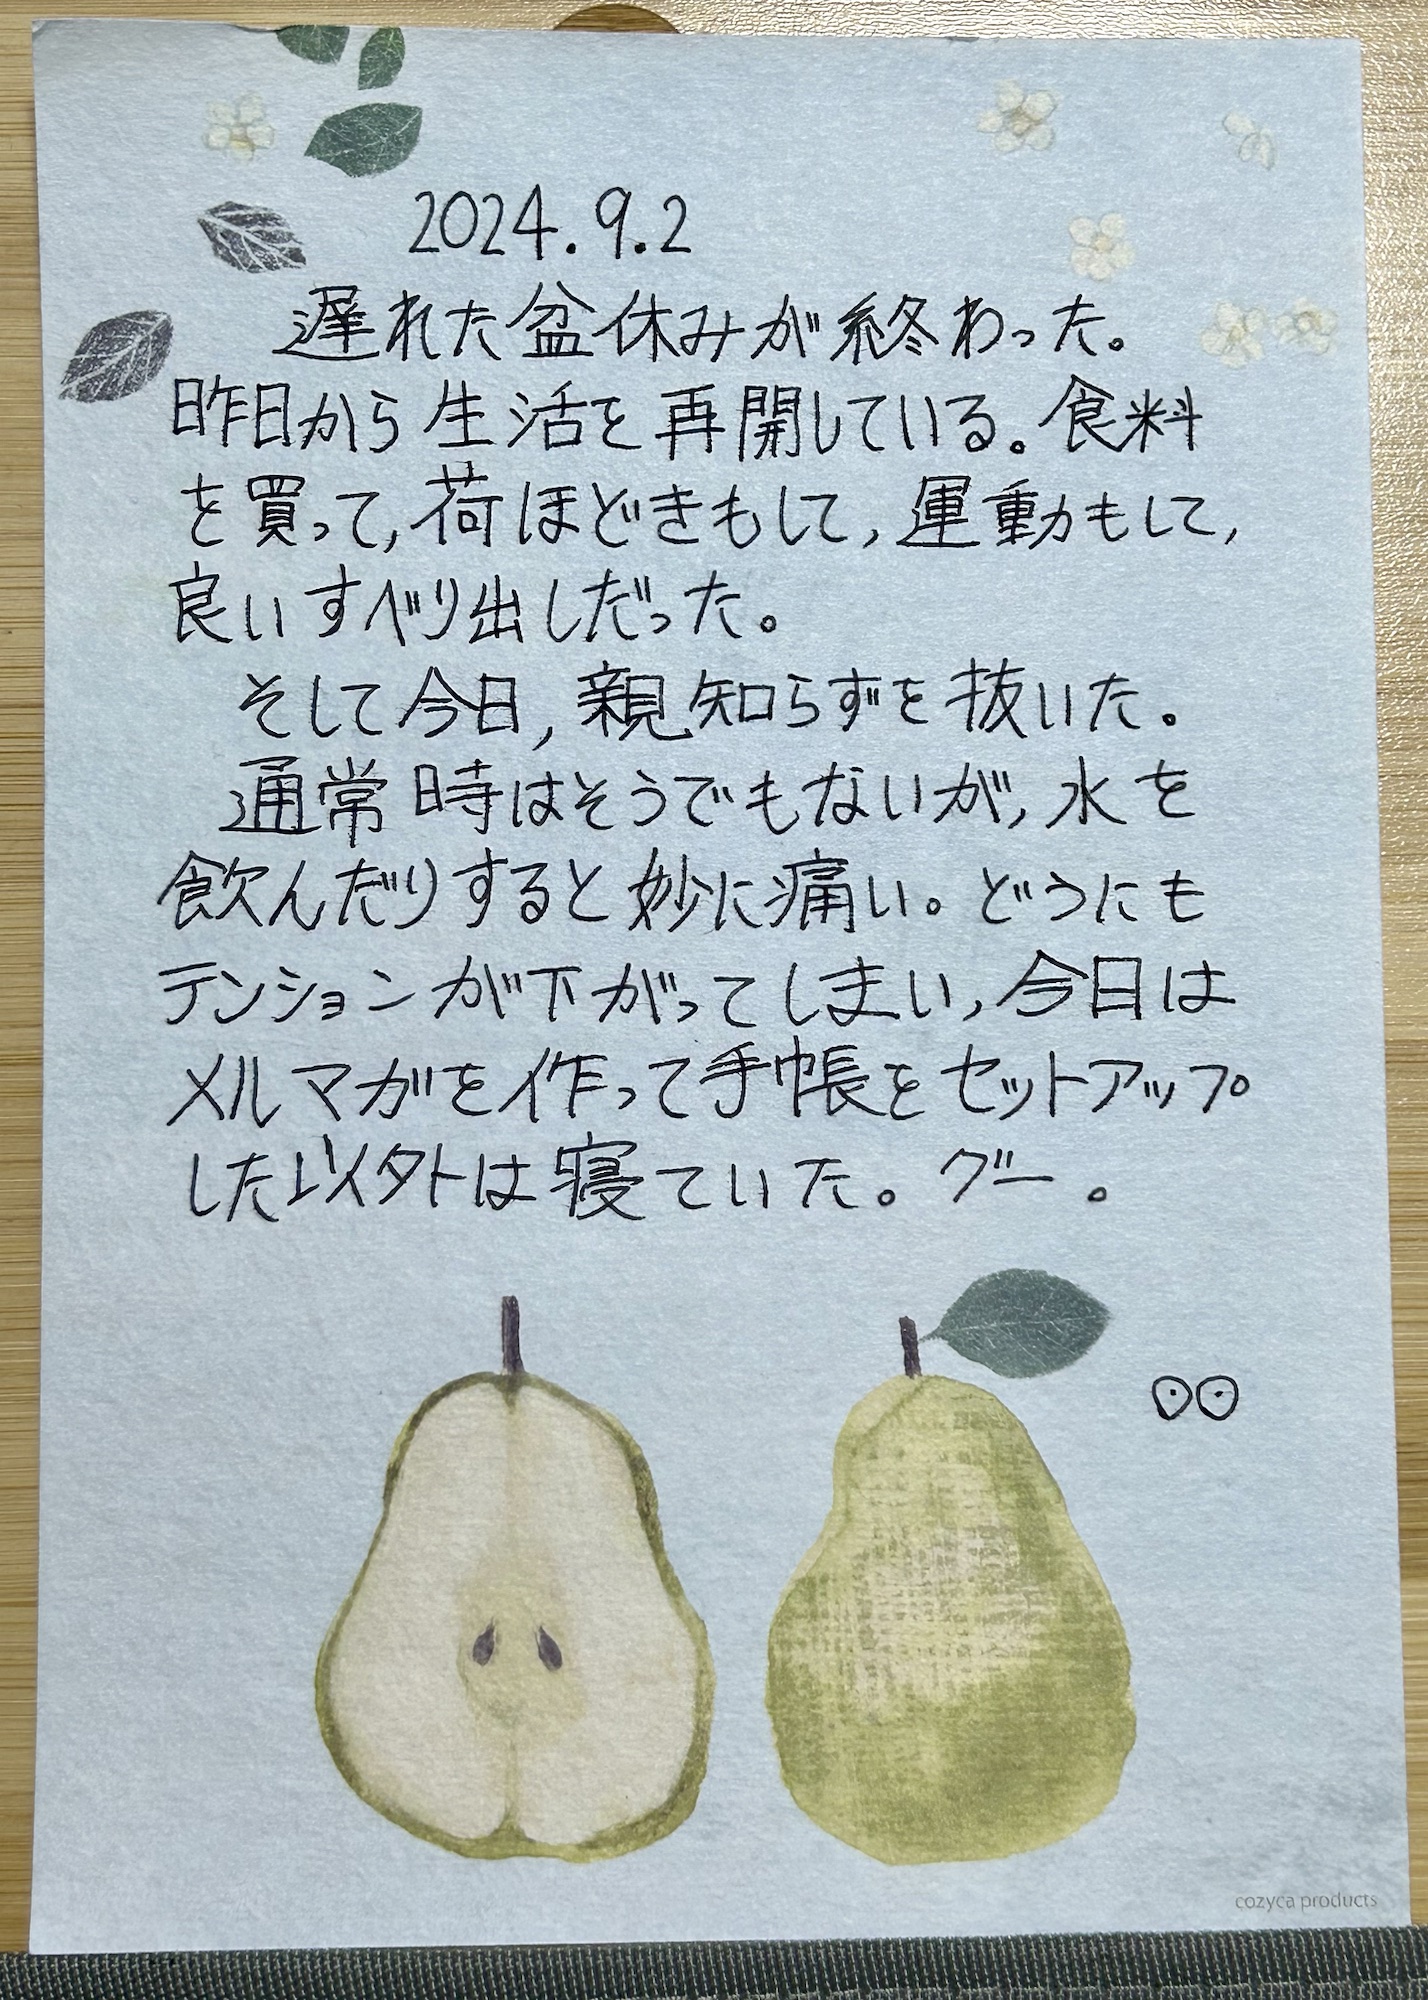 2024.9.2
遅れた盆休みが終わった。
昨日から生活を再開している。食料
を買って,荷ほどきもして,運動もして,
良いすべり出しだった。
そして今日,親知らずを抜いた。
通常時はそうでもないが,水を
飲んだりすると妙に痛い。どうにも
テンションが下がってしまい,今日は
メルマガを作って手帳をセットアップ
した以外は寝ていた。グー。
cozyca products